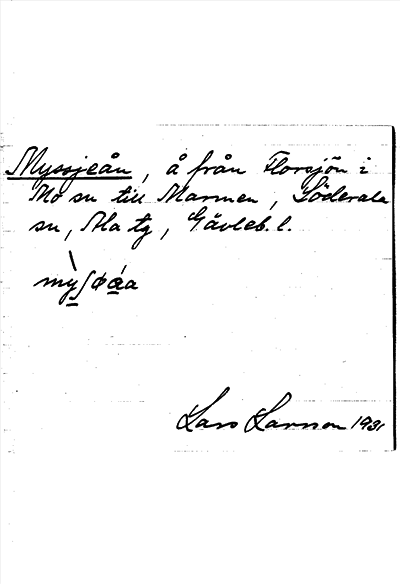 Myssjeån, å från Florsjön i
Mo sn till Marmen, Söderala
sn, Ala tg, Gävleb. l.
Lars Larsson 1931